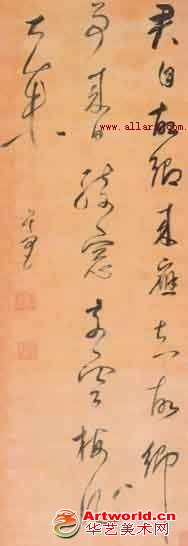 君自故鄉來應知故鄉
事來日綺窓前寒梅著
花未
www.allar
Artworld.cn
华艺美术网